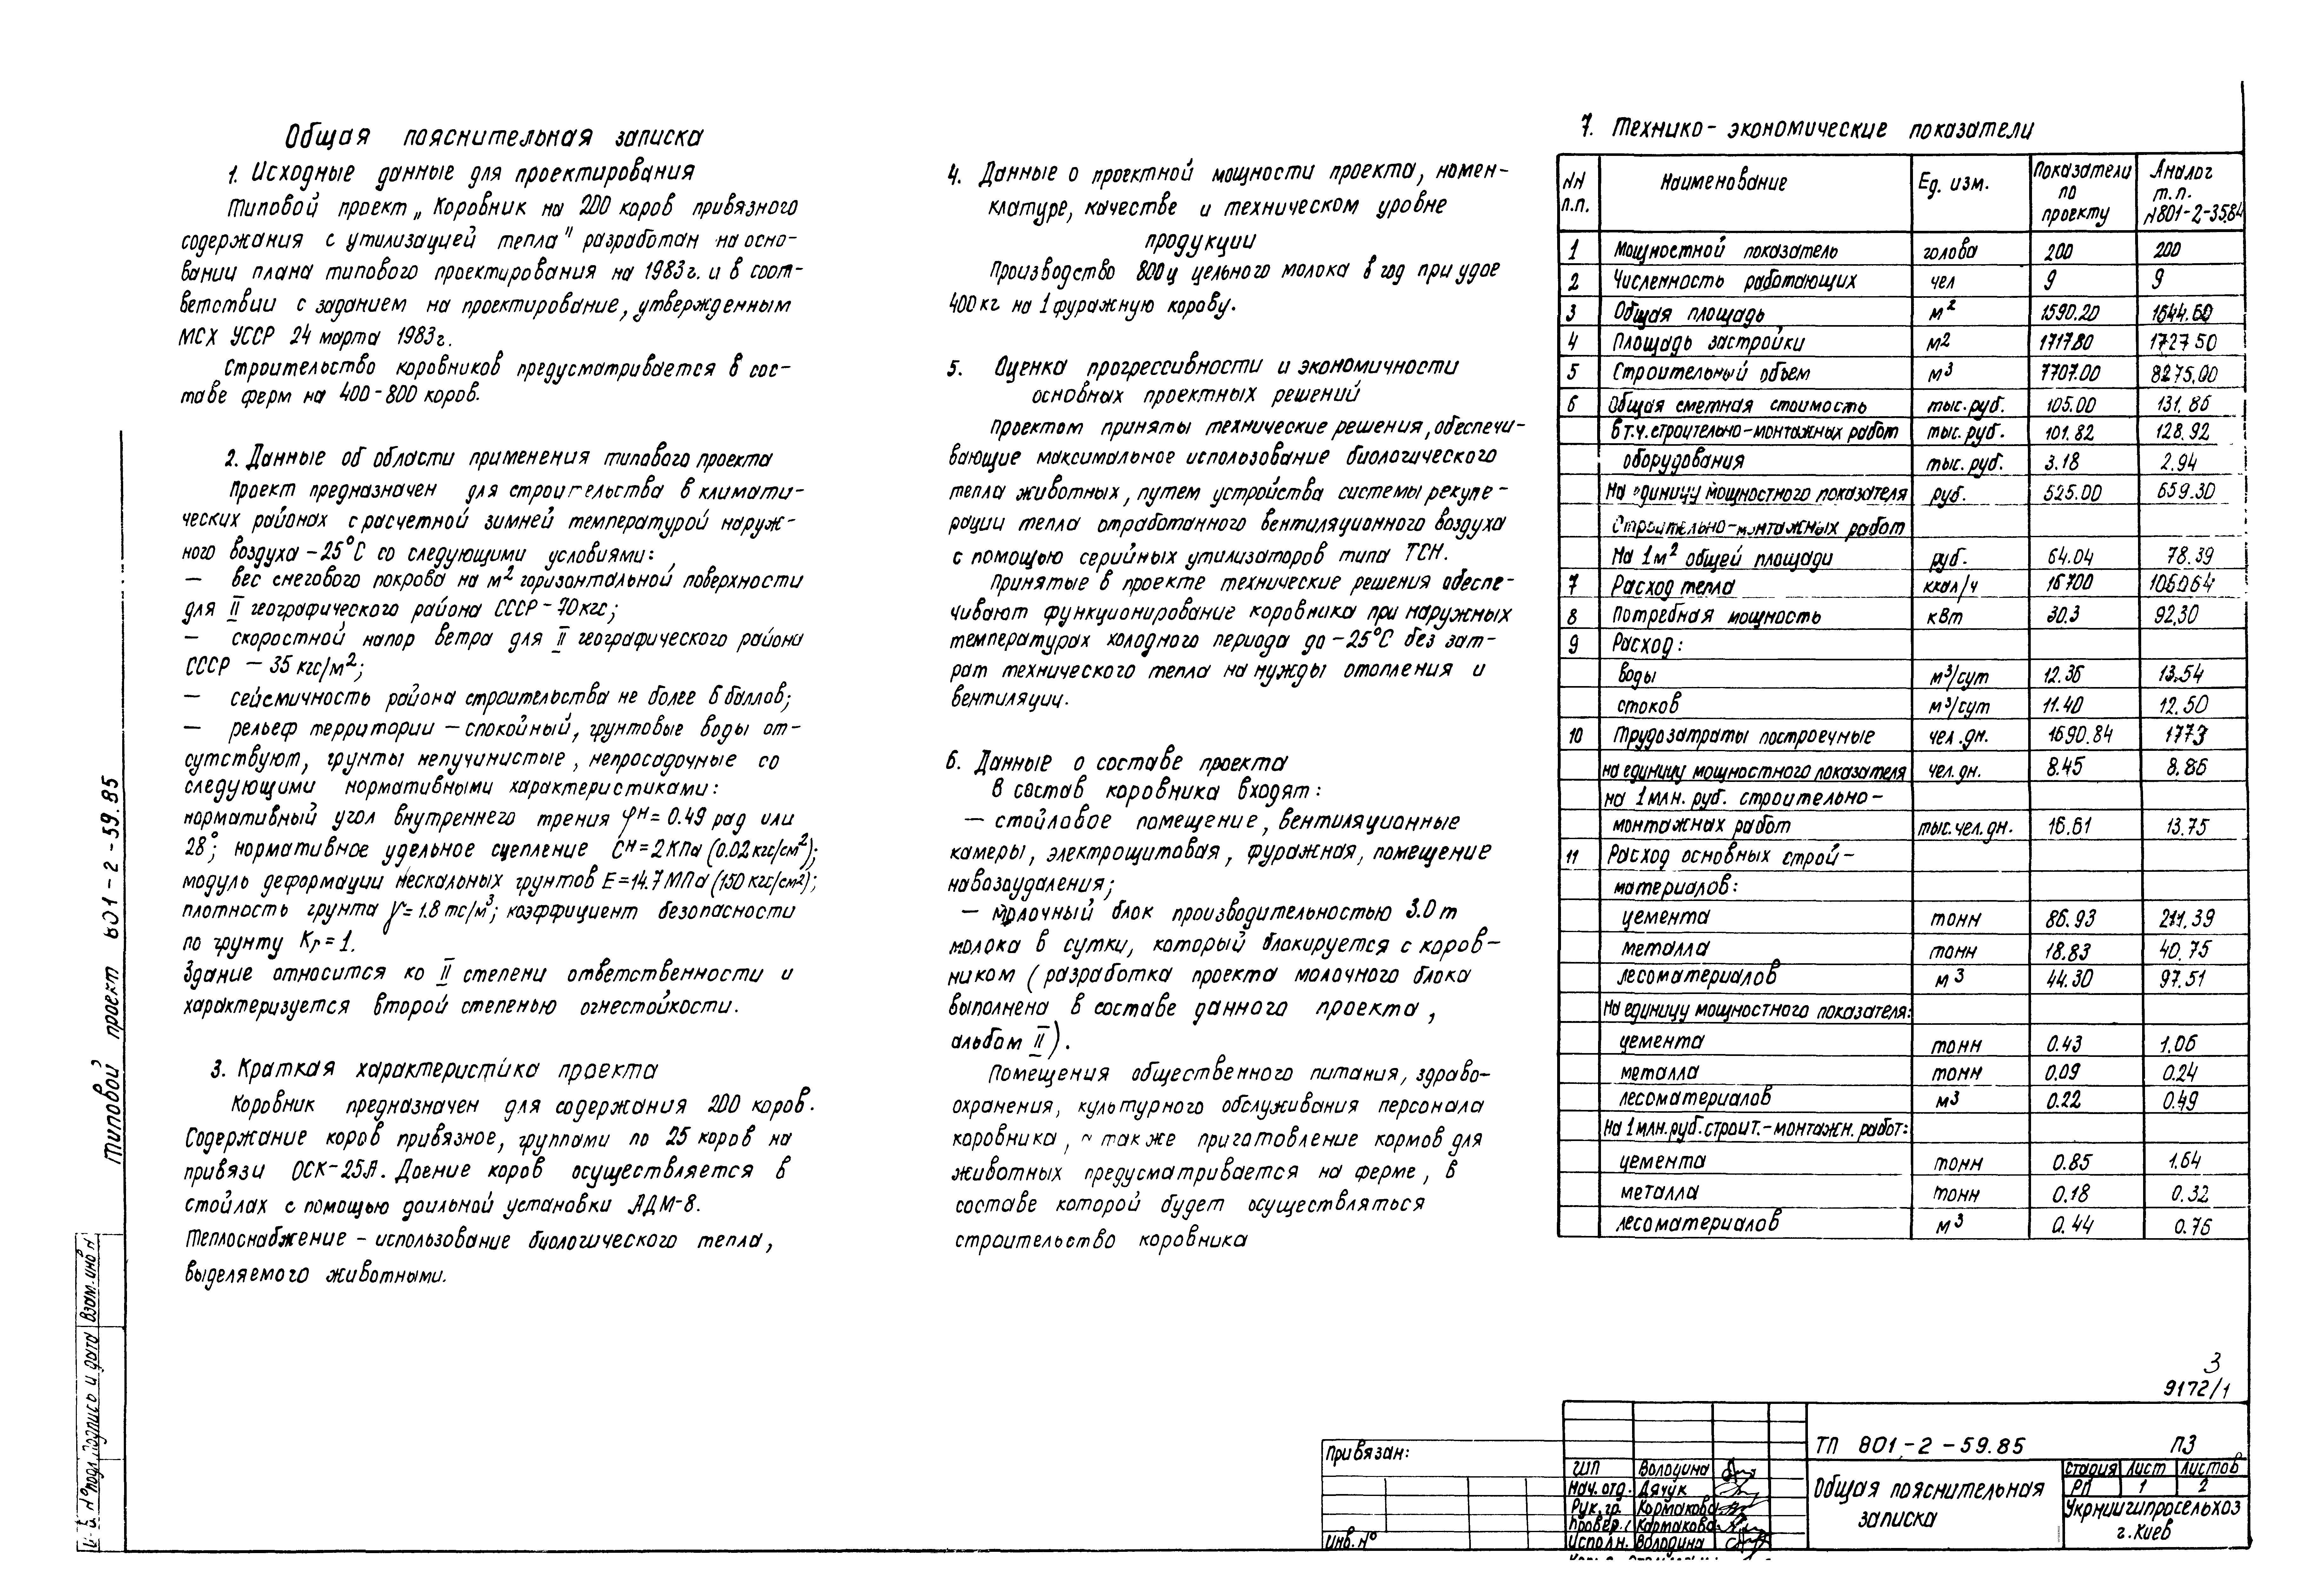 Общая пояснительная записка
1. Исходные данные для проектирования
Типовой проект „Коровник на 200 коров привязного
содержания с утилизацией тепла" разработан на осно-
вании плана типового проектирования на 1983г. и в соот-
ветствии с заданием на проектирование, утвержденным
МСХ УССР 24 марта 1983г.
Строительство коровников предусматривается в сос-
таве ферм на 400-800 коров.
2. Данные об области применения типового проекта
Проект предназначен для строительства в климати-
ческих районах с расчетной зимней температурой наруж-
ного воздуха -25°С со следующими условиями:
— вес снегового покрова на м² горизонтальной поверхности
для II географического района СССР - 70кгс;
— скоростной напор ветра для II географического района
СССР — 35 кгс/м²;
— сейсмичность района строительства не более 6 баллов;
— рельеф территории — спокойный, грунтовые воды от-
сутствуют, грунты непучинистые, непросадочные со
следующими нормативными характеристиками:
нормативный угол внутреннего трения φн = 0.49 рад или
28°; нормативное удельное сцепление Сн = 2КПа (0.02кгс/см²);
модуль деформации нескальных грунтов Е = 14.7 МПа (150 кгс/см²);
плотность грунта γ = 1.8 тс/м³; коэффициент безопасности
по грунту Кг = 1.
Здание относится ко II степени ответственности и
характеризуется второй степенью огнестойкости.
3. Краткая характеристика проекта
Коровник предназначен для содержания 200 коров.
Содержание коров привязное, группами по 25 коров на
привязи ОСК-25А. Доение коров осуществляется в
стойлах с помощью доильной установки АДМ-8.
Теплоснабжение - использование биологического тепла,
выделяемого животными.
4. Данные о проектной мощности проекта, номен-
клатуре, качестве и техническом уровне
продукции
Производство 800ц цельного молока в год при удое
400кг на 1 фуражную корову.
5. Оценка прогрессивности и экономичности
основных проектных решений
Проектом приняты технические решения, обеспечи-
вающие максимальное использование биологического
тепла животных, путем устройства системы рекупе-
рации тепла отработанного вентиляционного воздуха
с помощью серийных утилизаторов типа ТСН.
Принятые в проекте технические решения обеспе-
чивают функционирование коровника при наружных
температурах холодного периода до -25°С без зат-
рат технического тепла на нужды отопления и
вентиляции.
6. Данные о составе проекта
В состав коровника входят:
— стойловое помещение, вентиляционные
камеры, электрощитовая, фуражная, помещение
навозоудаления;
— молочный блок производительностью 3.0 т
молока в сутки, который блокируется с коров-
ником (разработка проекта молочного блока
выполнена в составе данного проекта,
альбом II).
Помещения общественного питания, здраво-
охранения, культурного обслуживания персонала
коровника, также приготовление кормов для
животных предусматривается на ферме, в
составе которой будет осуществляться
строительство коровника
7. Технико-экономические показатели
NN п.п. Наименование Ед. изм. Показатели по проекту Аналог т.п. N801-2-35.84
1 Мощностной показатель голова 200 200
2 Численность работающих чел 9 9
3 Общая площадь м² 1590.20 1644.60
4 Площадь застройки м² 1717.80 1727.50
5 Строительный объем м³ 7707.00 8275.00
6 Общая сметная стоимость тыс. руб. 105.00 131.86
в т.ч. строительно-монтажных работ тыс. руб. 101.82 128.92
оборудования тыс. руб. 3.18 2.94
На единицу мощностного показателя руб. 525.00 659.30
Строительно-монтажных работ
На 1м² общей площади руб. 64.04 78.39
7 Расход тепла ккал/ч 16700 106064
8 Потребная мощность кВт 30.3 92.30
9 Расход:
воды м³/сут 12.36 13.54
стоков м³/сут 11.40 12.50
10 Трудозатраты построечные чел. дн. 1690.84 1773
на единицу мощностного показателя чел. дн. 8.45 8.86
на 1млн. руб. строительно-
монтажных работ тыс. чел. дн. 16.61 13.75
11 Расход основных строй-
материалов:
цемента тонн 86.93 211.39
металла тонн 18.83 40.75
лесоматериалов м³ 44.30 97.51
На единицу мощностного показателя:
цемента тонн 0.43 1.06
металла тонн 0.09 0.24
лесоматериалов м³ 0.22 0.49
На 1млн. руб. строит.-монтажн. работ:
цемента тонн 0.85 1.64
металла тонн 0.18 0.32
лесоматериалов м³ 0.44 0.76
3
9172/1
Типовой проект 801-2-59.85
Взам. инв N
Подпись и дата
N° подл.
Привязан:
Инв. N°
ГИП Володина
Нач. отд. Дячук
Рук. гр. Кормакова
Провер. Кармакова
Исполн. Володина
ТП 801-2-59.85 ПЗ
Общая пояснительная
записка
Стадия Лист Листов
РП 1 2
Укрниигипросельхоз
г. Киев